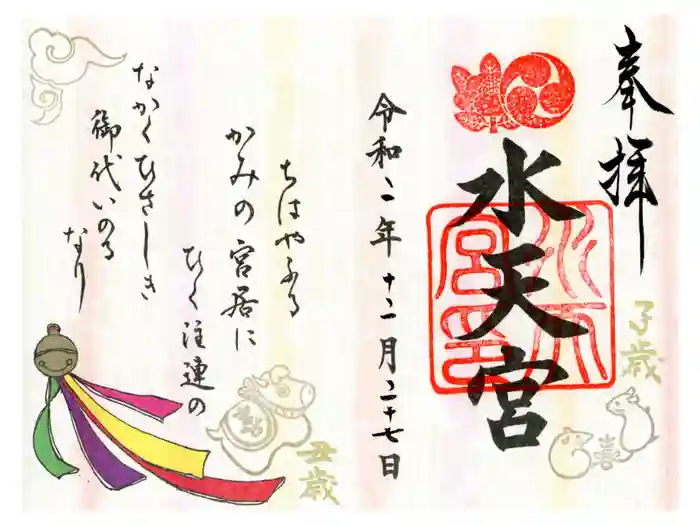 奉拝
水天宮
水天宮印
子歳
喜
令和二年十二月二十七日
ちはやふる
かみの宮居に
ひく注連の
なかくひさしき
御代いのる
なり
丑歳